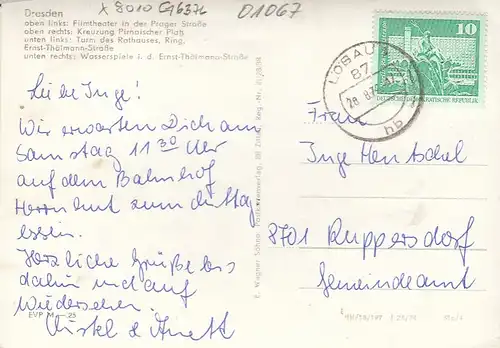 x 8010 G6376
01067
Dresden
oben links: Filmtheater in der Prager Straße
oben rechts: Kreuzung Pirnaischer Platz
unten links: Turm des Rathauses, Ring,
Ernst-Thälmann-Straße
unten rechts: Wasserspiele i. d. Ernst-Thälmann-Straße
10
DEUTSCHE DEMOKRATISCHE REPUBLIK
LÖBAU
87
hb
Liebe Inge!
Wir erwarten Dich am
Samstag 11 30 Uhr
auf dem Bahnhof
Herrnhut zum Mittag
essen.
Herzliche Grüße bis
dahin und auf
Wiedersehen.
Christel & Anett
EVP M —.25
E. Wagner Söhne, Postkartenverlag, 88 Zittau, Reg.-Nr.
Frau
Inge Hentschel
8701 Ruppersdorf
Gemeindeamt